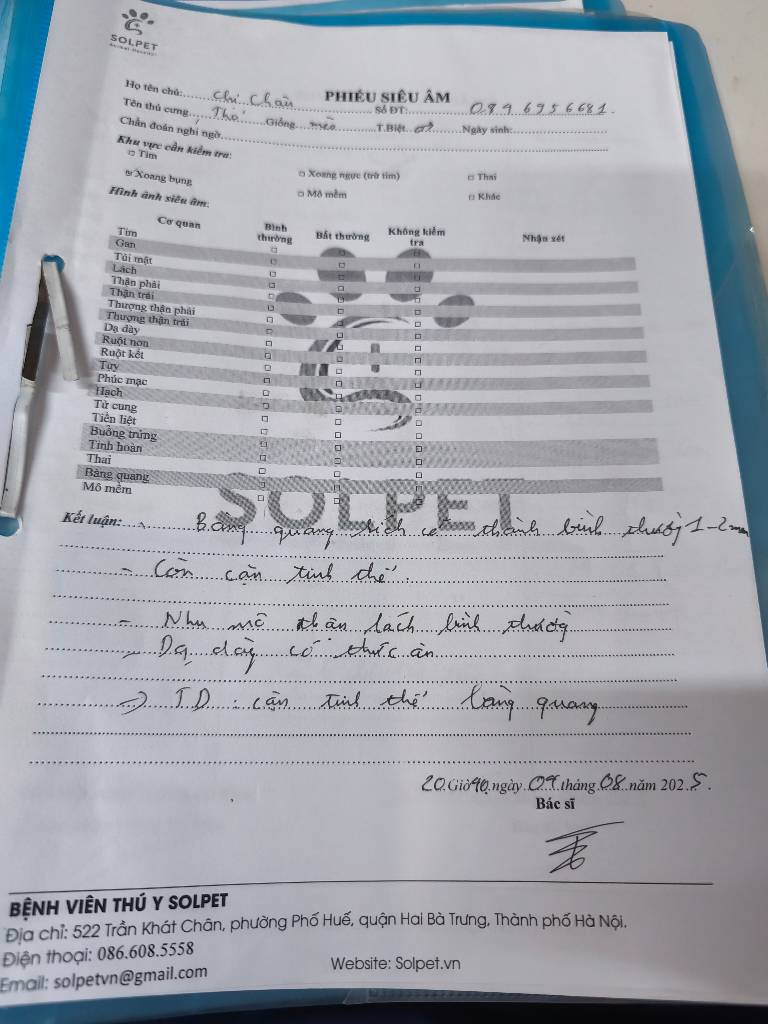 SOLPET
Animal Hospital
PHIẾU SIÊU ÂM
Họ tên chủ: Chị Chần Số ĐT: 0896956681
Tên thú cưng Thỏ Giống mèo T.Biệt Ngày sinh:
Chẩn đoán nghi ngờ
Khu vực cần kiểm tra:
Tim Xoang ngực (trừ tim) Thai
Xoang bụng Mô mềm Khác
Hình ảnh siêu âm:
Cơ quan Bình thường Bất thường Không kiểm tra Nhận xét
Tim
Gan
Túi mật
Lách
Thận phải
Thận trái
Thượng thận phải
Thượng thận trái
Dạ dày
Ruột non
Ruột kết
Tụy
Phúc mạc
Hạch
Tử cung
Tiền liệt
Buồng trứng
Tinh hoàn
Thai
Bàng quang
Mô mềm
SOLPET
Kết luận: - Bàng quang kích cỡ thành bình thường 1-2mm
- Còn cặn tinh thể.
- Nhu mô thận lách bình thường
- Dạ dày có thức ăn
=> TD: cặn tinh thể bàng quang
20 Giờ 40 ngày 09 tháng 08 năm 2025.
Bác sĩ
BỆNH VIÊN THÚ Y SOLPET
Địa chỉ: 522 Trần Khát Chân, phường Phố Huế, quận Hai Bà Trưng, Thành phố Hà Nội.
Điện thoại: 086.608.5558
Email: solpetvn@gmail.com Website: Solpet.vn